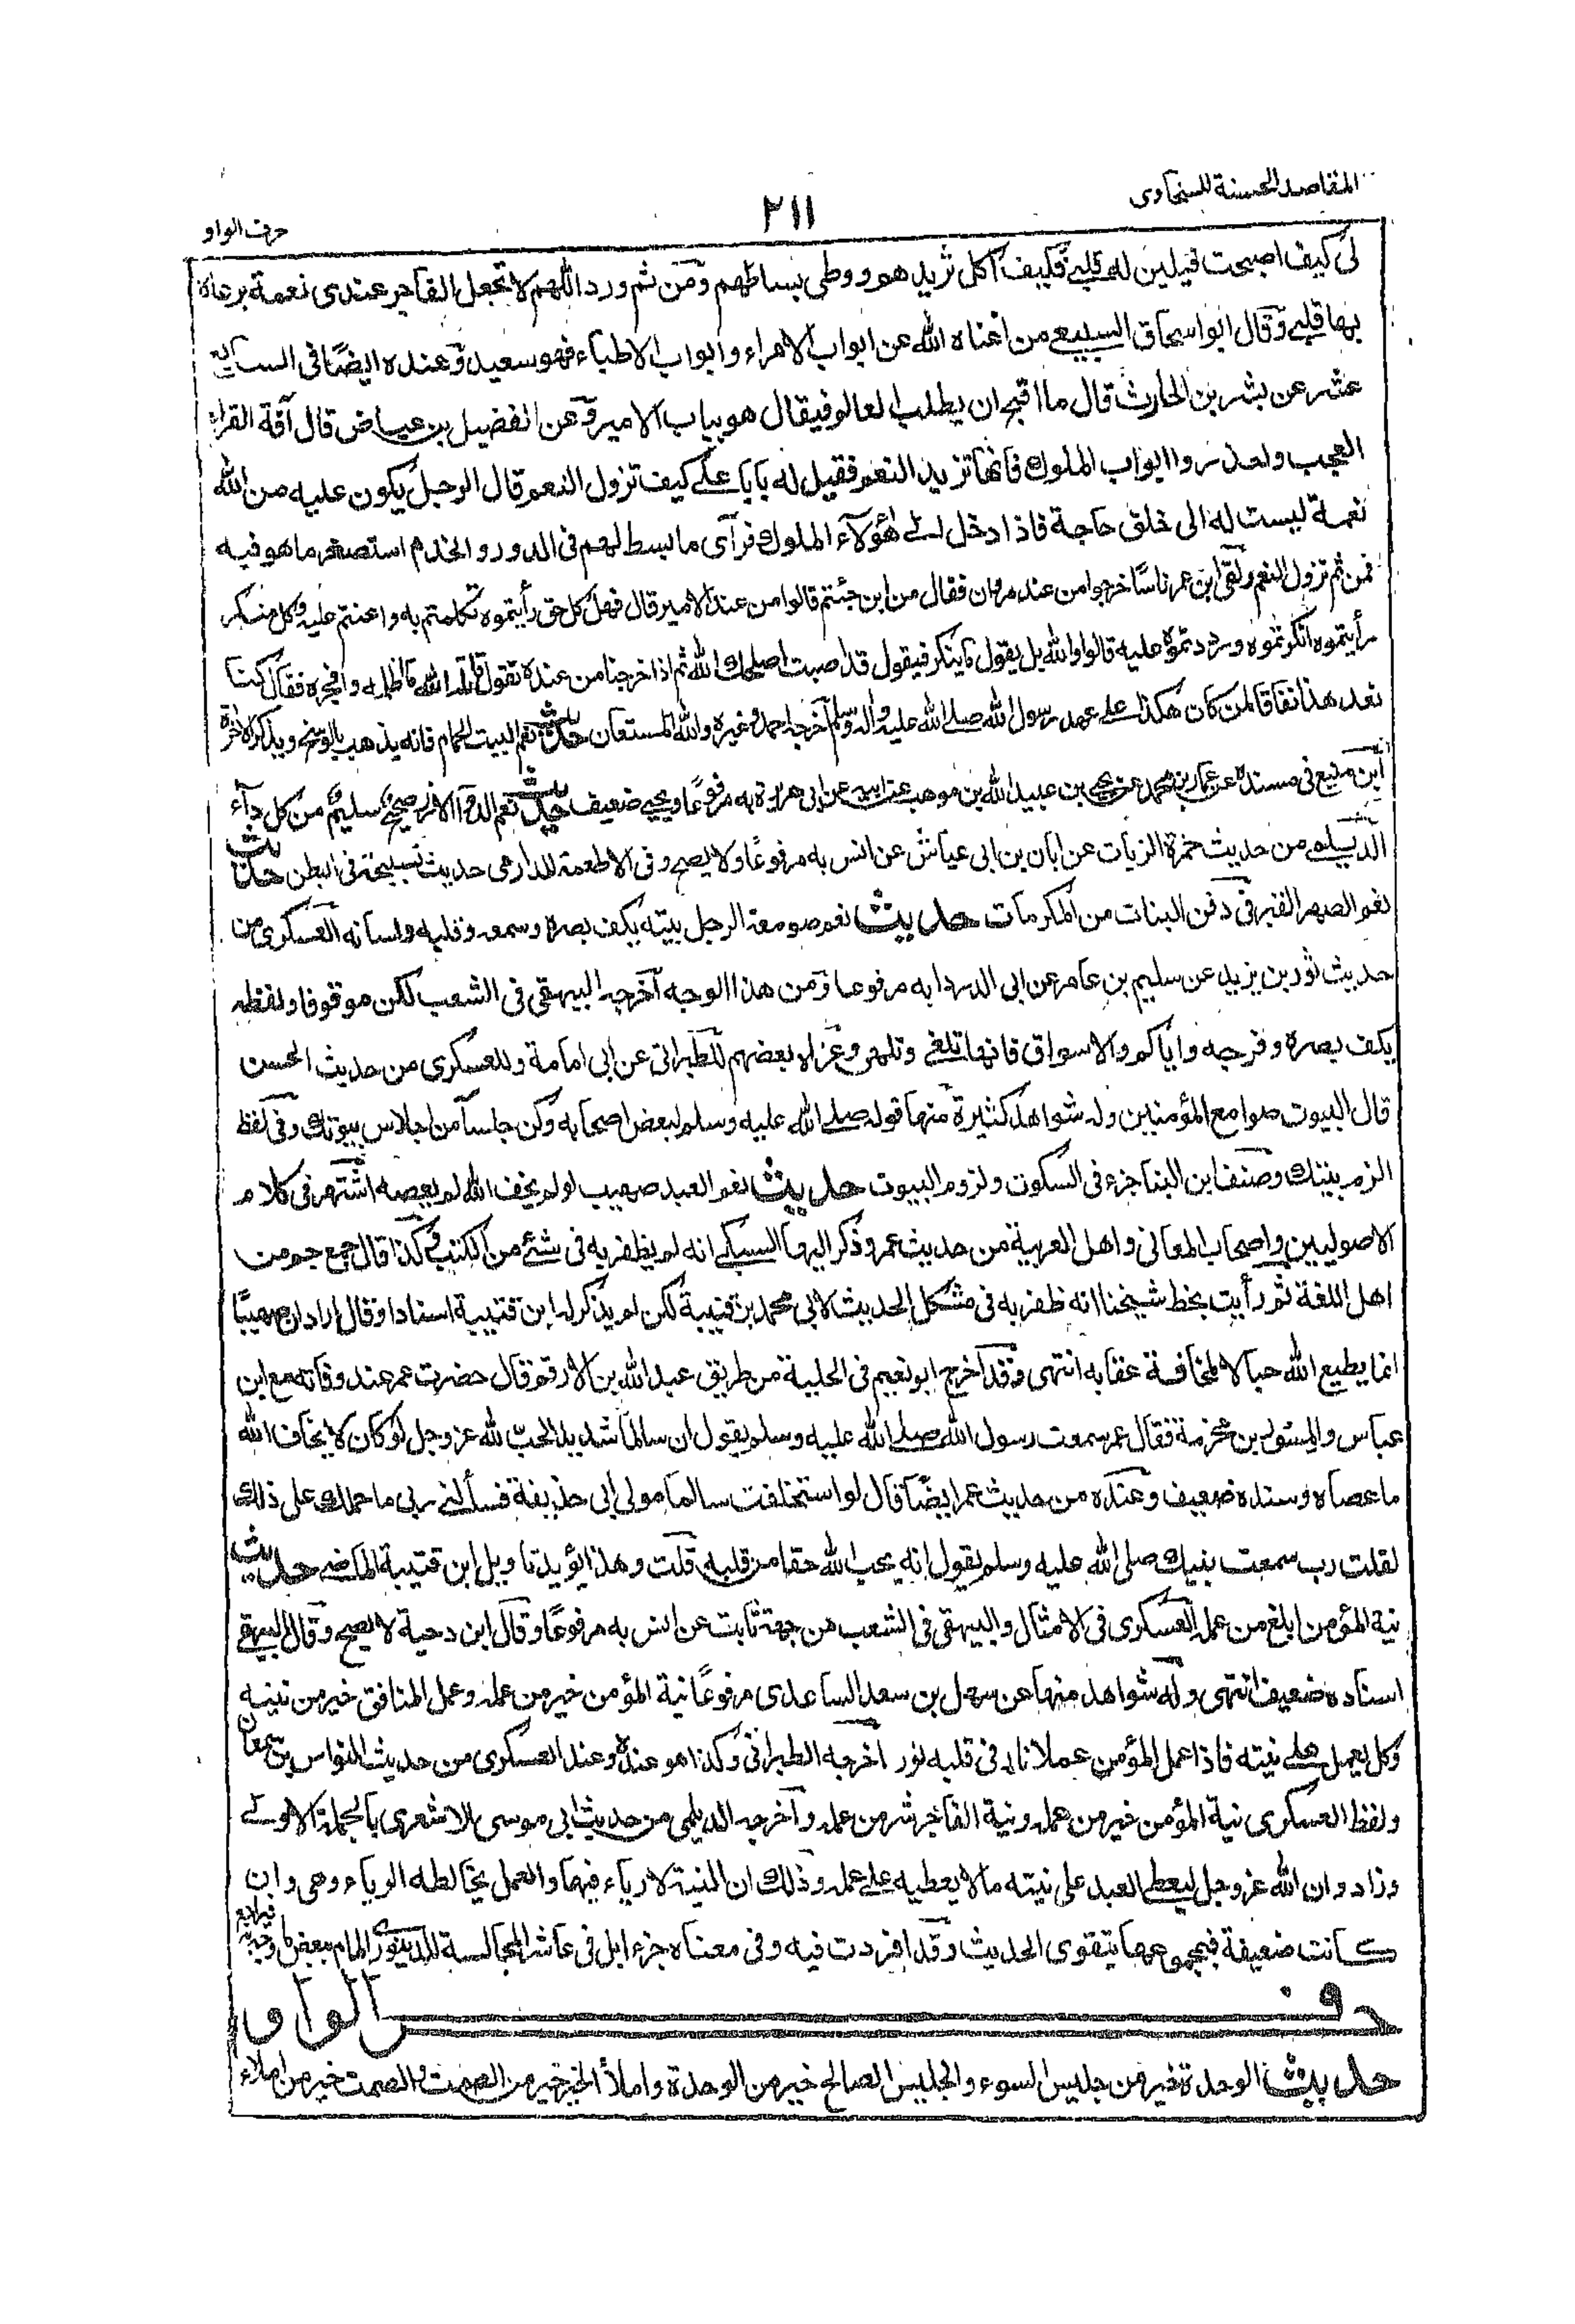 المقاصد الحسنة للسخاوى
٢١١
حرف الواو
لى كيف اصبحت فيلين له قلبى فكيف آكل ثريدهم ووطى بساطهم ومن ثم ورد اللهم لا تجعل الفاجر عندى نعمة يرعاه
بها قلبى وقال ابو اسحاق السبيعى من اغناه الله عن ابواب الامراء وابواب الاطباء فهو سعيد وعنده ايضًا فى السابع
عشر عن بشر بن الحارث قال ما اقبح ان يطلب العالم فيقال هو بباب الامير وعن الفضيل بن عياض قال آفة القراء
العجب واحذروا ابواب الملوك فانها تزيل النعم فقيل له يابا على كيف تزول النعم قال الرجل يكون عليه من الله
نعمة ليست له الى خلق حاجة فاذا دخل الى هؤلآء الملوك فرآى ما بسط لهم فى الدور والخدم استصغر ما هو فيه
فمن ثم تزول النعم ولقى ابن عمر ناسًا خرجوا من عند مروان فقال من اين جئتم قالوا من عند الامير قال فهل كل حق رأيتموه تكلمتم به واعنتم عليه وكل منكر
رأيتموه انكرتموه ورددتموه عليه قالوا والله بل يقول ما ينكر فيقول قد اصبت اصلحك الله ثم اذا خرجنا من عنده نقول قاتله الله ما اظلمه وافجره فقال كنا
نعد هذا نفاقا لمن كان هكذا على عهد رسول الله صلى الله عليه واله وسلم آخرجه احمد وغيره والله المستعان حديث نعم البيت الحمام فانه يذهب بالوسخ ويذكر الاخرة
ابن منيع فى مسنده عن عمار بن محمد عن يحيى بن عبيد الله بن موهب عن ابيه عن ابى هريرة به مرفوعًا ويحيى ضعيف حديث نعم الدوآ الارز صحيح سليم من كل دآء
الديلمى من حديث حمزة الزيات عن ابان بن ابى عياش عن انس به مرفوعًا ولا يصح وفى الاطعمة للدارمى حديث تسبيحته فى البطن حديث
نعم الصهر القبر فى دفن البنات من المكرمات حديث نعم صومعة الرجل بيته يكف بصره وسمعه وقلبه ولسانه العسكرى من
حديث ثور بن يزيد عن سليم بن عامر عن ابى الدرداء به مرفوعا ومن هذا الوجه آخرجه البيهقى فى الشعب لكن موقوفا ولفظه
يكف بصره وفرجه واياكم والاسواق فانها تلغى وتلهى وعزاه بعضهم للطبرانى عن ابى امامة وللعسكرى من حديث الحسن
قال البيوت صوامع المؤمنين وله شواهد كثيرة منها قوله صلى الله عليه وسلم لبعض اصحابه وكن جلسا من اجلاس بيوتك وفى لفظ
الزم بيتك وصنف ابن البنا جزء فى السكون ولزوم البيوت حديث نعم العبد صهيب لو لم يخف الله لم يعصه اشتهر فى كلام
الاصوليين واصحاب المعانى واهل العربية من حديث عمر وذكر البهآ السبكى انه لم يظفر به فى شئ من الكتب وكذا قال جمع جم من
اهل اللغة ثم رأيت بخط شيخنا انه ظفر به فى مشكل الحديث لابى محمد بن قتيبة لكن لم يذكر له ابن قتيبة اسنادا وقال اراد ان صهيبًا
انما يطيع الله حبا لا لمخافة عقابه انتهى وقد آخرج ابو نعيم فى الحلية من طريق عبد الله بن الارقم قال حضرت عمر عند وفاته مع ابن
عباس والمسور بن مخرمة فقال عمر سمعت رسول الله صلى الله عليه وسلم يقول ان سالمًا شديد الحب لله عز وجل لو كان لا يخاف الله
ما عصاه وسنده ضعيف وعنده من حديث عمر ايضًا قال لو استخلفت سالما مولى ابى حذيفة فسألنى ربى ما حملك على ذلك
لقلت رب سمعت نبيك صلى الله عليه وسلم يقول انه يحب الله حقا من قلبه قلت وهذا يؤيد تاويل ابن قتيبة الماضى حديث
نية المؤمن ابلغ من عمله العسكرى فى الامثال والبيهقى فى الشعب من جهة ثابت عن انس به مرفوعًا وقال ابن دحية لا يصح وقال البيهقى
اسناده ضعيف انتهى وله شواهد منها عن سهل بن سعد الساعدى مرفوعًا نية المؤمن خير من عمله وعمل المنافق خير من نيته
وكل يعمل على نيته فاذا عمل المؤمن عملا نار فى قلبه نور اخرجه الطبرانى وكذا هو عنده وعند العسكرى من حديث النواس بن سمعان
ولفظ العسكرى نية المؤمن خير من عمله ونية الفاجر شر من عمله وآخرجه الديلمى من حديث ابى موسى الاشعرى بالجملة الاولى
وزاد وان الله عز وجل ليعطى العبد على نيته ما لا يعطيه على عمله وذلك ان النية لا رياء فيها والعمل يخالطه الرياء وهى وان
كانت ضعيفة فبمجموعها يتقوى الحديث وقد افردت فيه وفى معناه جزء ابل فى عاشر المجالسة للدينورى المام ببعض ما وجد
حرف الواو
حديث الوحدة خير من جليس السوء والجليس الصالح خير من الوحدة واملأ الخير خير من الصمت والصمت خير من املاء